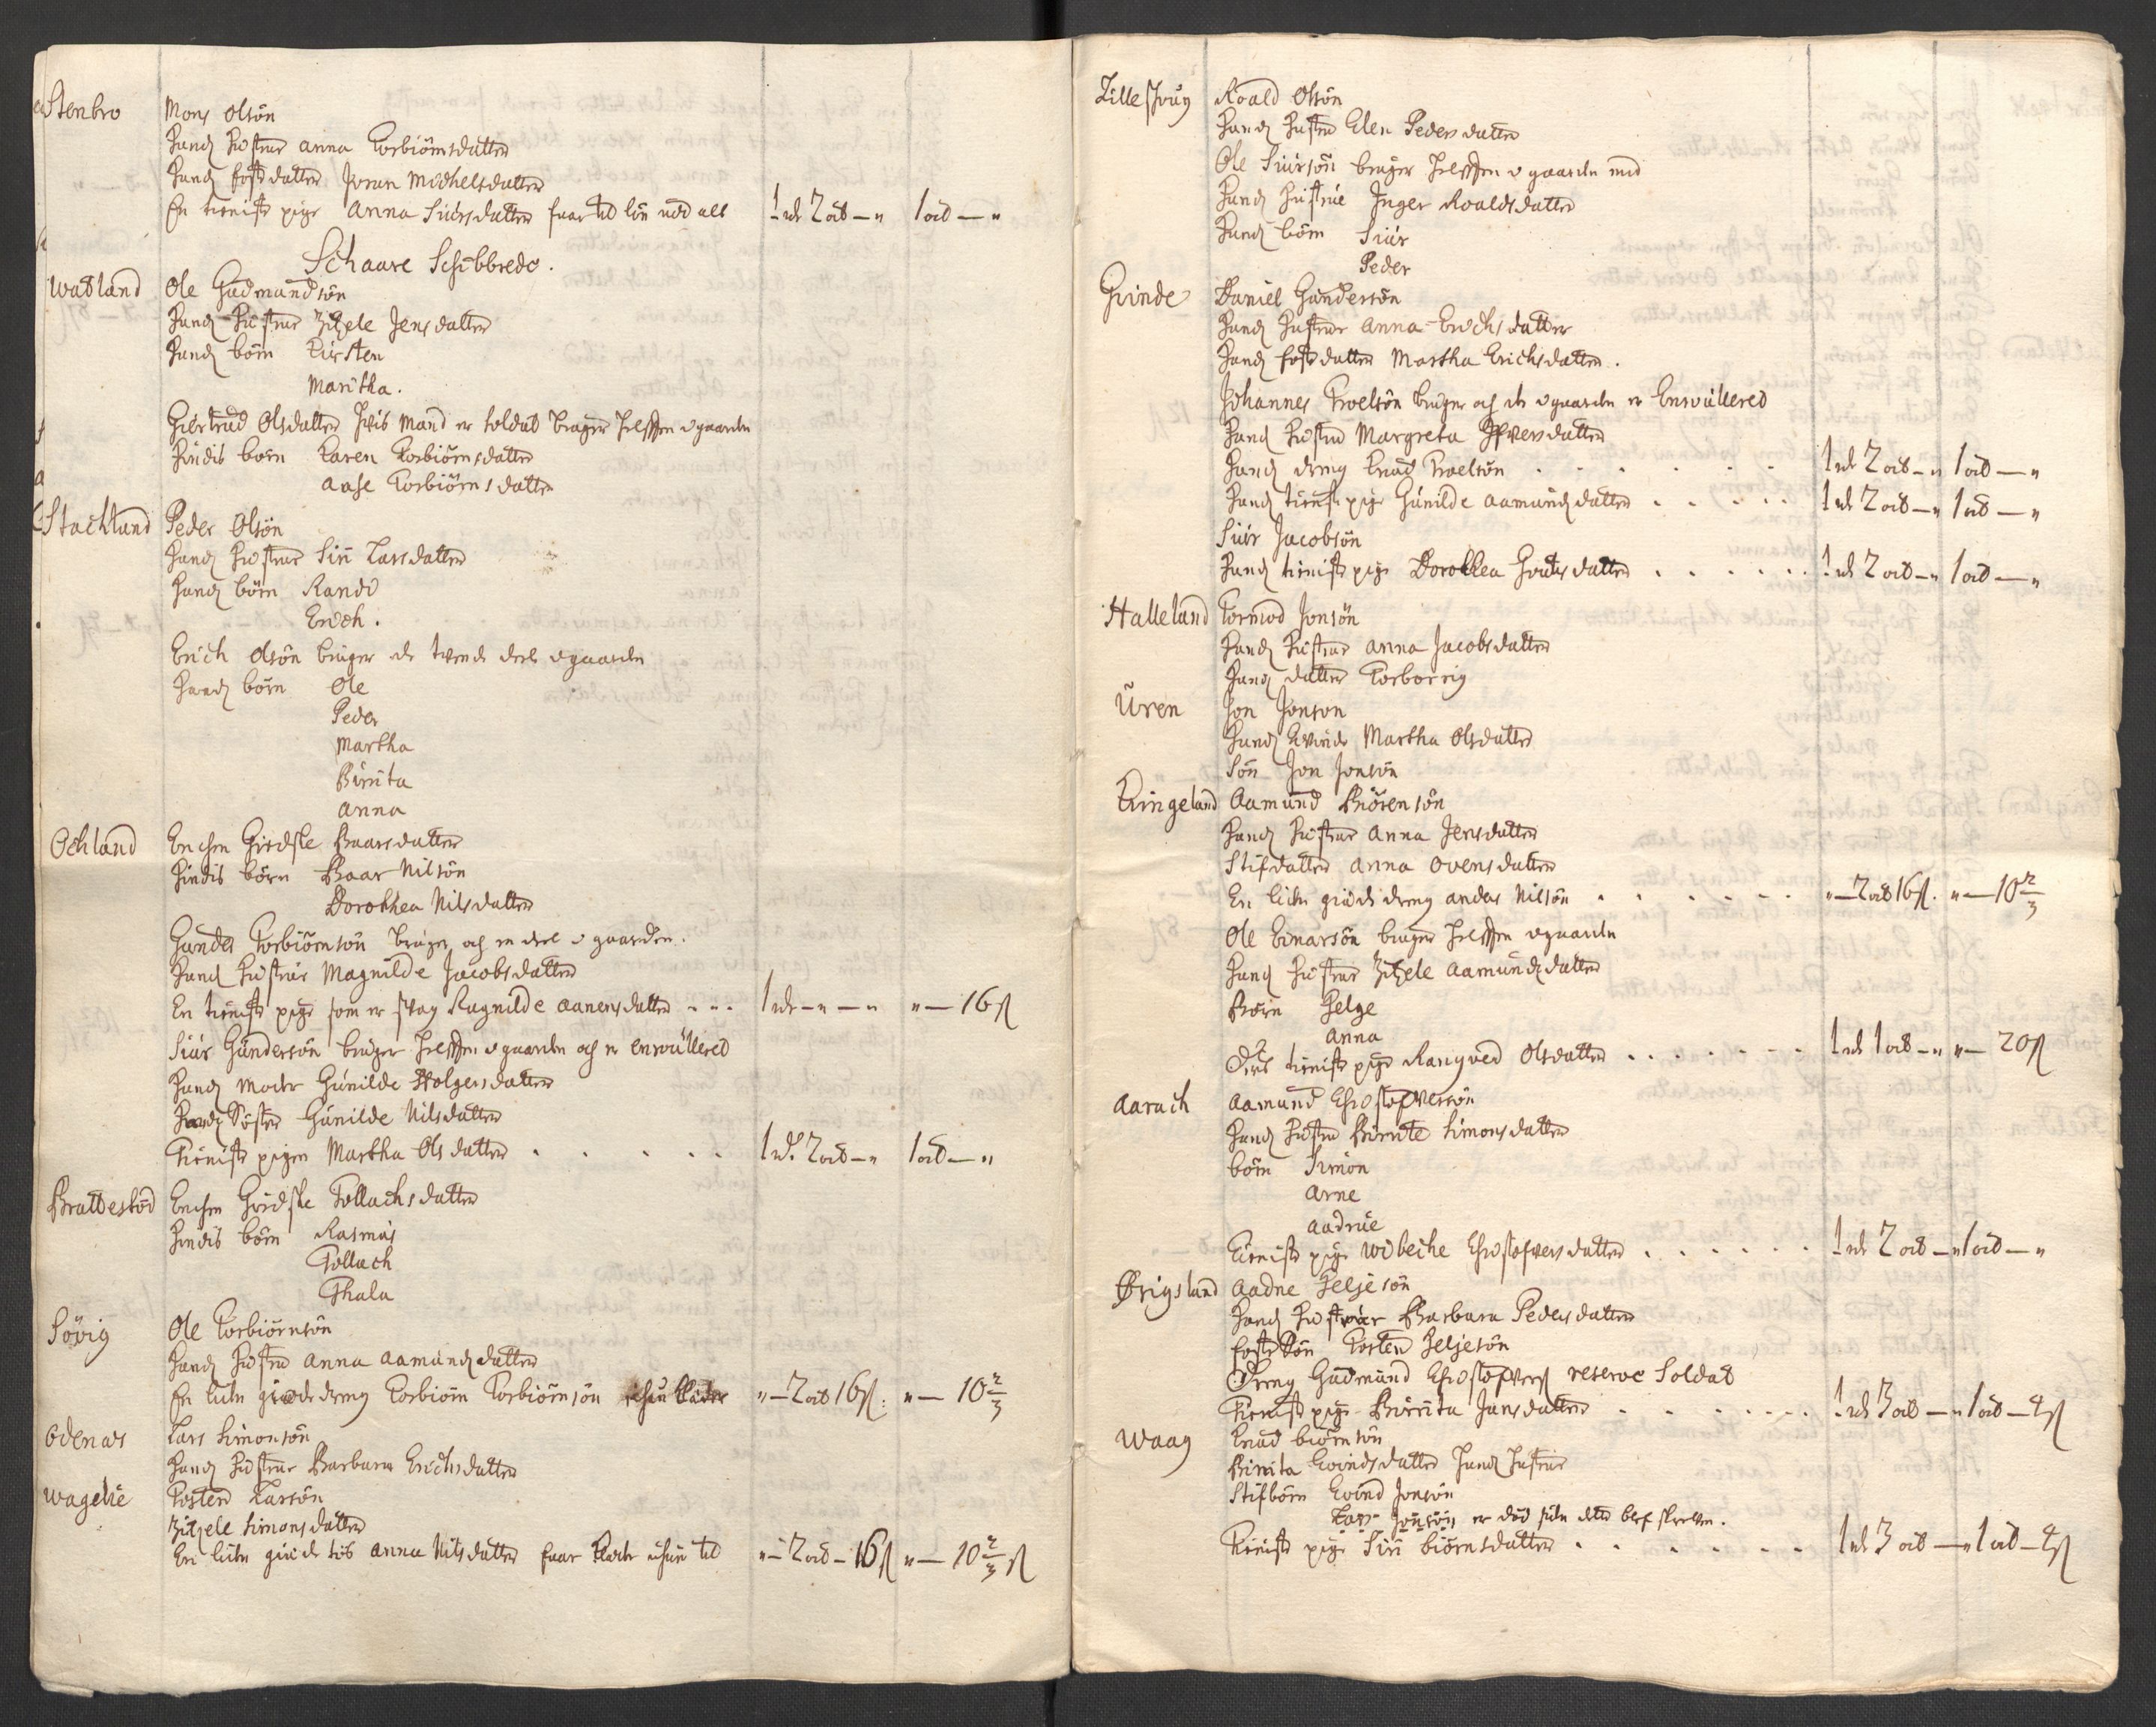 Stenbro Mons Olsön
Hands hustrue Anna Torbiörnsdatter
Hands fostdatter Joran Michelsdatter
En tieniste pige Anna Siursdatter faar til lön udd alt 1 rd 2 ort — " 1 ort — "
Schaare Schibbrede.
Watland Ole Gudmundsön
Hands Hustrue Zitzele Jensdatter
Hands börn Kirsten
Maritha.
Giertrud Olsdatter hvis Mand er soldat bruger helfften i gaarden
Hindis börn Karen Torbiörnsdatter
Aase Torbiörnsdatter
Stachland Peder Olsön
Hands Hustrue Siri Larsdatter
Hands börn Randi
Erich.
Erich Olsön bruger de tvende deele i gaarden
Hands börn Ole
Peder
Martha
Birrita
Anna
Ochland Enchen Giedske Baarsdatter
Hindis börn Baar Nilsön
Dorothea Nilsdatter
Gunder Torbiörnsön bruger och en deel i gaarden.
Hands Hustrue Magnilde Jacobsdatter
En tieniste pige som er svag Ragnilde Aanensdatter 1 rd — " — " " — 16 s
Siur Gundersön bruger helfften i gaarden och er enroullered
Hands Moder Gunilde Holgersdatter
Hands Söster Gunilde Nilsdatter
Tieniste pigen Martha Olsdatter 1 rd. 2 ort — " 1 ort — "
Brattestöd Enchen Giedske Tollachsdatter
Hindis börn Rasmus
Tollach
Thala
Sövig Ole Torbiörnsön
Hands Hustrue Anna Aamundsdatter
En liden giede dreng Torbiörn Torbiörnsön " — 2 ort 16 s. " — 10 2/3
Odenæs Lars Simonsön
Hands Hustrue Barbara Erichsdatter
Wagelie Tosten Larsön
Zitzele Simonsdatter
En liden giede tös Anna Nilsdatter faar " — 2 ort — 16 s " — 10 2/3 s
Lille Roald Olsön
Hands Hustrue Elen Pedersdatter
Ole Siursön bruger helfften i gaarden med
Hands Hustrue Inger Roaldsdatter
Hands börn Siur
Peder
Grinde Daniel Gundersön
Hands Hustrue Anna Erichsdatter
Hands fostdatter Martha Erichsdatter.
Johannes Troelsön bruger och der i gaarden er Enroullered
Hands Hustrue Margreta Ifversdatter
Hands dreng Knud Troelsön 1 rd 2 ort — " 1 ort — "
Hands tieniste pige Gunilde Aamundsdatter 1 rd 2 ort — " 1 ort — "
Siur Jacobsön
Hands tieniste pige Dorothea Goutesdatter 1 rd 2 ort — " 1 ort — "
Halleland Tormod Jonsön
Hands Hustrue Anna Jacobsdatter
Hands datter Torborrig
Uren Jon Jonson
Hands Qvinde Martha Olsdatter
Sön Jon Jonsön
Ringeland Aamund Biörensön
Hands Hustrue Anna Jensdatter
Stifdatter Anna Ovensdatter
En liden giede dreng Anders Nilsön " — 2 ort 16 s. " — 10 2/3
Ole Einarsön bruger helfften i gaarden
Hands Hustrue Zitzele Aamundsdatter
Börn Helge
Anna
Ders tieniste pige Rangved Olsdatter 1 rd 1 ort — " " — 20 s
Aarach Aamund Christofversön
Hands Hustrue Birrete Simonsdatter
börn Simon
Arne
Aadnie
Tieniste pige Wibeche Christofversdatter 1 rd 2 ort — " 1 ort — "
Ørigsland Aadne Heljesön
Hands Hustrue Barbara Pedersdatter
foster Sön Tosten Heljesön
Dreng Gudmund Christofvers reserve Soldat
Tieniste pige Birrita Jansdatter 1 rd 3 ort — " 1 ort — 8 s
Waag Knud Biörnsön
Birrita Eivindsdatter Hands Hustrue
Stifbörn Eivind Jonsön
Lars Jonsön er död siden dette blef skreven.
Tieniste pige Siri Biörnsdatter 1 rd 3 ort — " 1 ort — 8 s